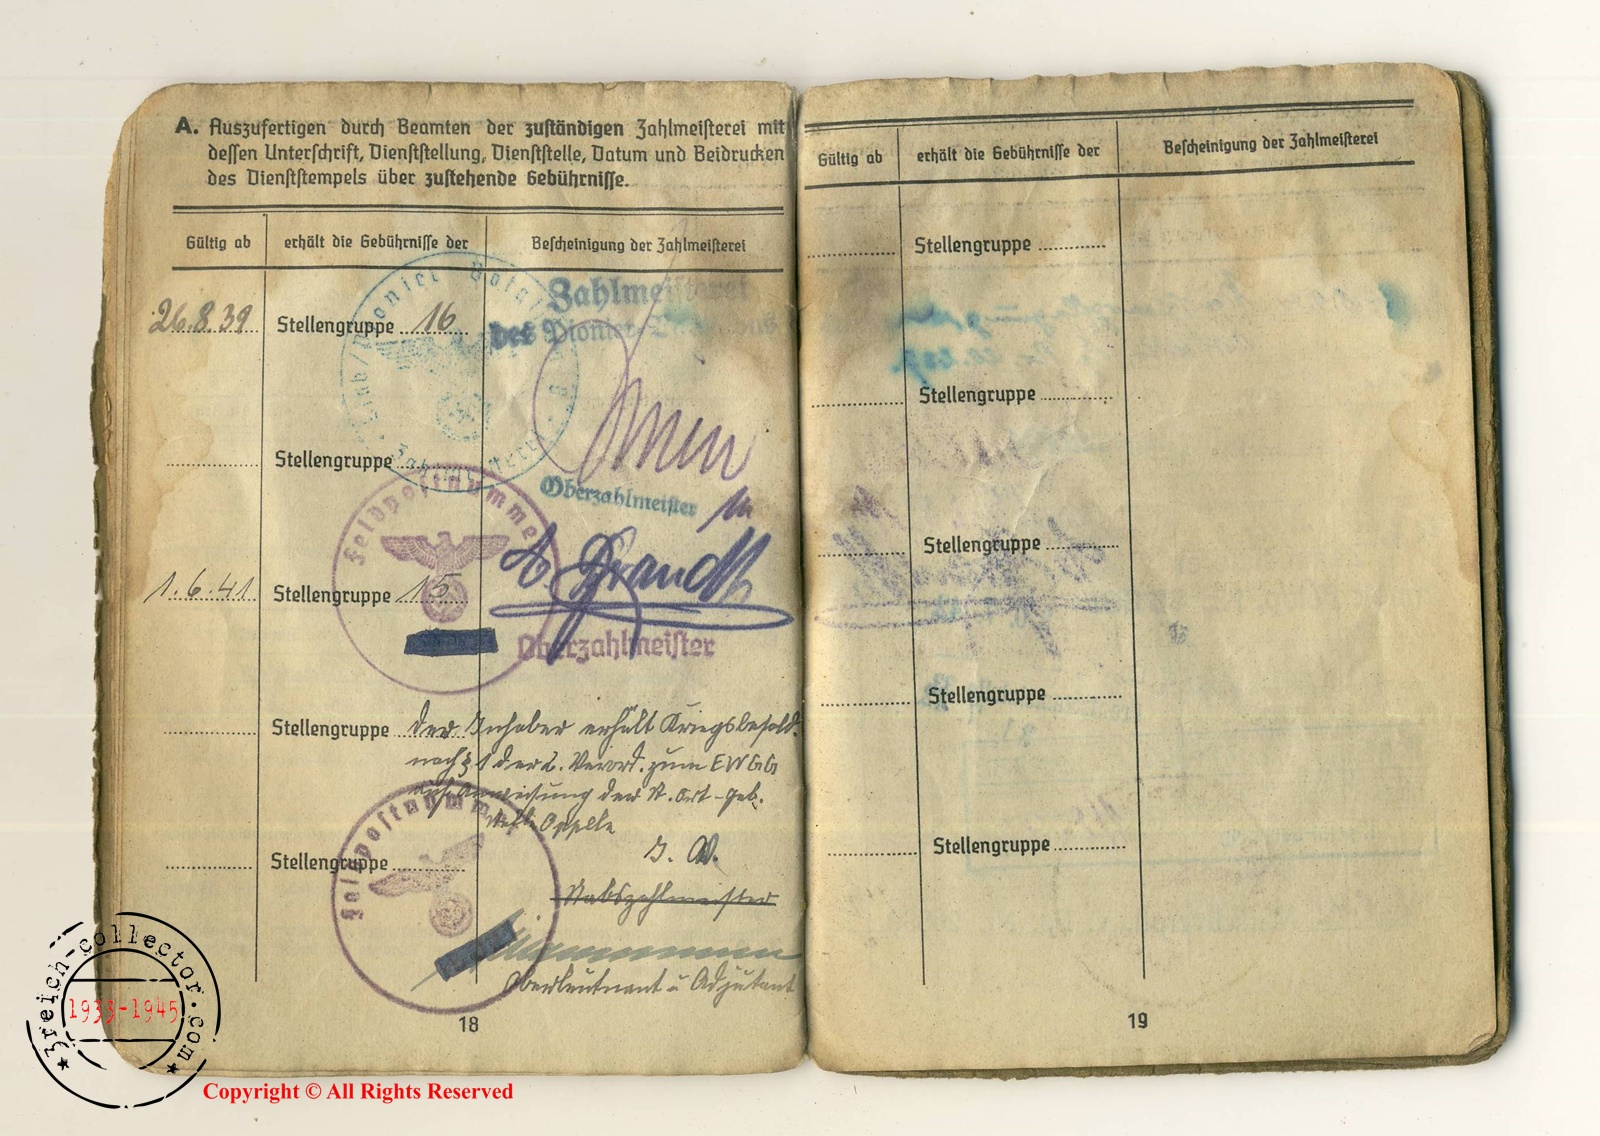 A. Auszufertigen durch Beamten der zuständigen Zahlmeisterei mit
dessen Unterschrift, Dienststellung, Dienststelle, Datum und Beidrucken
des Dienststempels über zustehende Gebührnisse.
Gültig ab erhält die Gebührnisse der Bescheinigung der Zahlmeisterei
Zahlmeisterei
26.8.39 Stellengruppe 16
des Pionier
Stellengruppe
Oberzahlmeister
Feldpostnummer
Brandt
1.6.41. Stellengruppe 15
Oberzahlmeister
Stellengruppe der Inhaber erhält Kriegsbesold.
nach § 1 der 2. Verord. zum EWGG
auf Anweisung der
Feldpostnummer
J. V.
Stellengruppe
Stabszahlmeister
Oberleutnant u Adjutant
18
Gültig ab erhält die Gebührnisse der Bescheinigung der Zahlmeisterei
Stellengruppe
Stellengruppe
Stellengruppe
Stellengruppe
Stellengruppe
19
3reich-collector.com
1933-1945
Copyright © All Rights Reserved